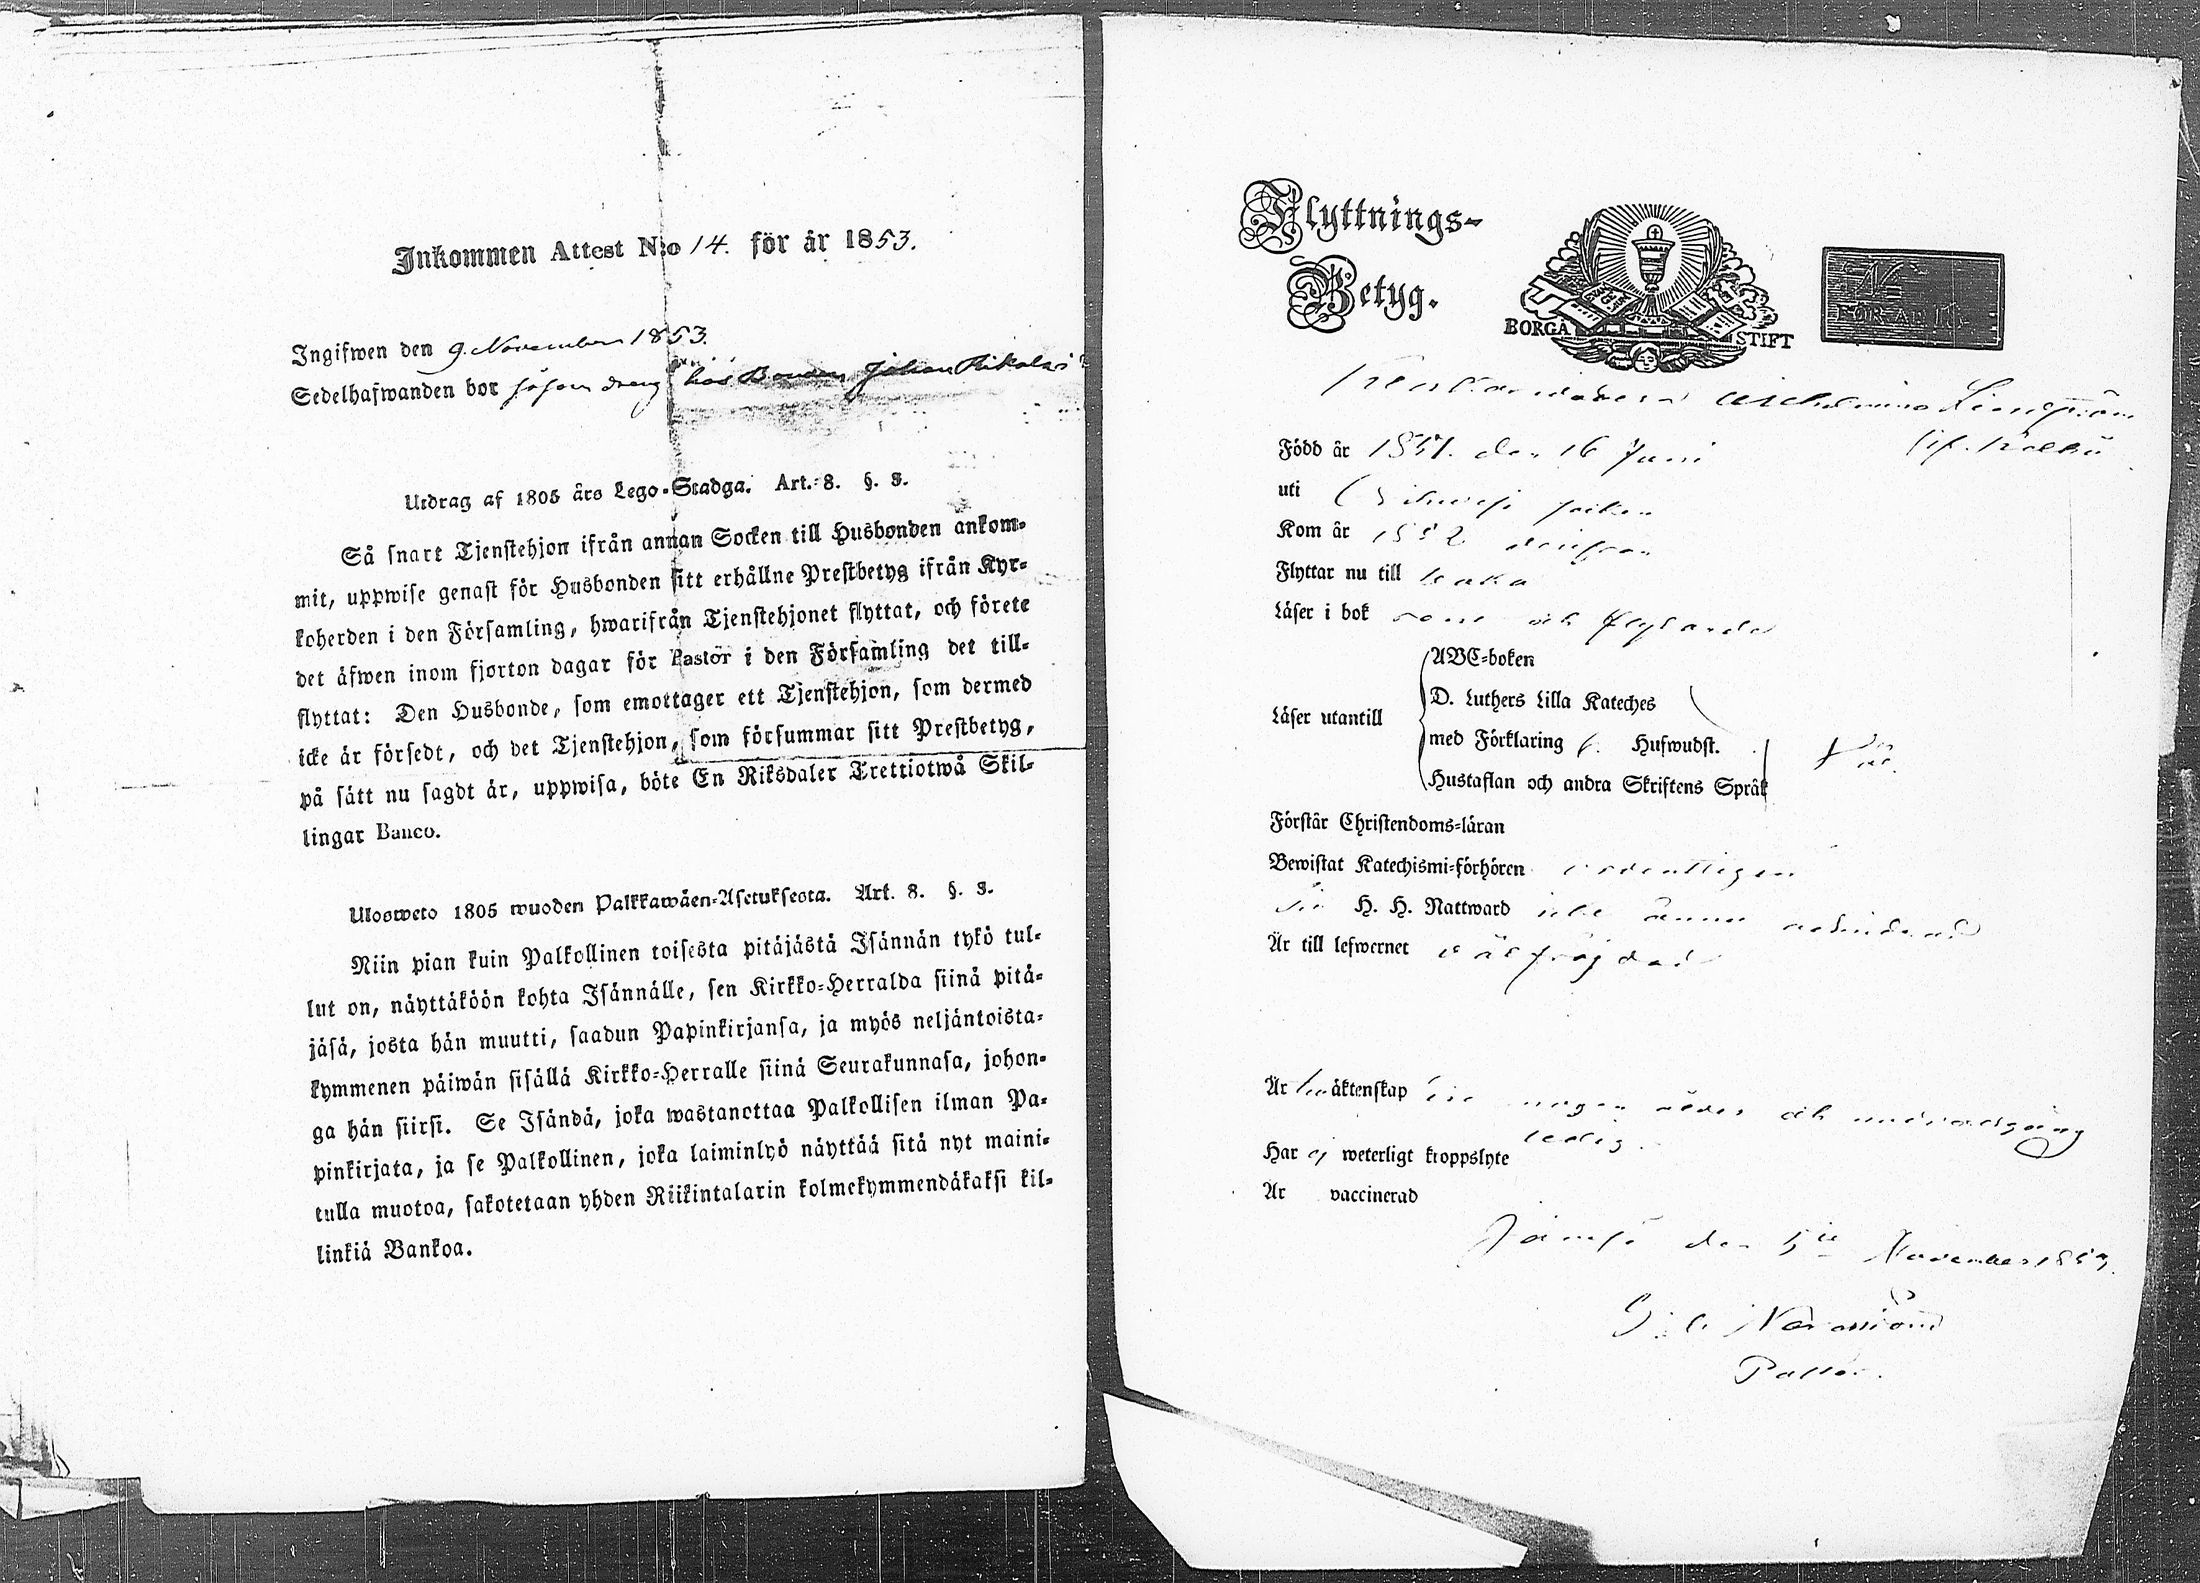 Inkommen Attest N:o 14. för år 1853.
Ingifwen den 9 November 1853.
Sedelhafwanden bor hos Bonden Johan
Utdrag af 1805 års Lego-Stadga. Art. 8. §. 3.
Så snart Tjenstehjon ifrån annan Socken till Husbonden ankom-
mit, uppwise genast för Husbonden sitt erhållne Prestbetyg ifrån Kyr-
koherden i den Församling, hwarifrån Tjenstehjonet flyttat, och förete
det äfwen inom fjorton dagar för Pastor i den Församling det till-
flyttat: Den Husbonde, som emottager ett Tjenstehjon, som dermed
icke är försedt, och det Tjenstehjon, som försummar sitt Prestbetyg,
på sätt nu sagdt är, uppwisa, böte En Riksdaler Trettiotwå Skil-
lingar Banco.
Ulosweto 1805 wuoden Palkkawäen-Asetuksesta. Art. 8. §. 3.
Niin pian kuin Palkollinen toisesta pitäjästä Isännän tykö tul-
lut on, näyttäköön kohta Isännälle, sen Kirkko-Herralda siinä pitä-
jäsä, josta hän muutti, saadun Papinkirjansa, ja myös neljäntoista-
kymmenen päiwän sisällä Kirkko-Herralle siinä Seurakunnasa, johon-
ga hän siirsi. Se Isändä, joka wastanottaa Palkollisen ilman Pa-
pinkirjata, ja se Palkollinen, joka laiminlyö näyttää sitä nyt maini-
tulla muotoa, sakotetaan yhden Riikintalarin kolmekymmendäkaksi kil-
linkiä Bankoa.
Flyttnings-
Betyg.
BORGÅ STIFT
N:o
FÖR ÅR 18
Född år 1851. den 16 Juni
uti
Kom år 1852
Flyttar nu till
Läser i bok och
Läser utantill
ABC-boken
D. Luthers Lilla Kateches
med Förklaring Hufwudst.
Hustaflan och andra Skriftens Språk
Förstår Christendoms-läran
Bewistat Katechismi-förhören ordentligen
H. H. Nattward icke ännu
Är till lefwernet välfrejdad
Är äktenskap och
ledig.
Har ej weterligt kroppslyte
Är vaccinerad
Jämsä den 5te November 1853.
Pastor.